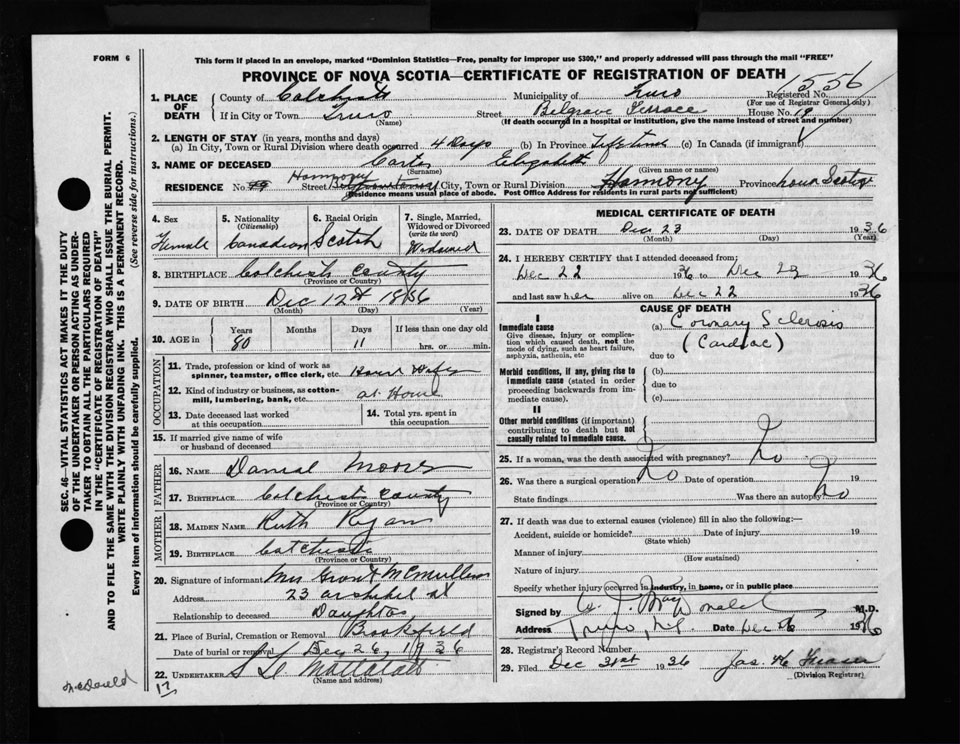 FORM 6
This form if placed in an envelope, marked "Dominion Statistics—Free, penalty for improper use $300," and properly addressed will pass through the mail "FREE"
PROVINCE OF NOVA SCOTIA—CERTIFICATE OF REGISTRATION OF DEATH
1556
1. PLACE OF DEATH
County of Colchester Municipality of Truro Registered No.
(For use of Registrar General only)
If in City or Town Truro Street Belgrave Terrace House No. 19
(Name) (If death occurred in a hospital or institution, give the name instead of street and number)
2. LENGTH OF STAY (in years, months and days)
(a) In City, Town or Rural Division where death occurred 4 Days (b) In Province Life time (c) In Canada (if immigrant)
3. NAME OF DECEASED Carter Elizabeth
(Surname) (Given name or names)
RESIDENCE No. Street Harmony City, Town or Rural Division Harmony Province Nova Scotia
(Residence means usual place of abode. Post Office Address for residents in rural parts not sufficient)
4. Sex
Female
5. Nationality
(Citizenship)
Canadian
6. Racial Origin
Scotch
7. Single, Married, Widowed or Divorced
(write the word)
Widowed
8. BIRTHPLACE Colchester County
(Province or Country)
9. DATE OF BIRTH Dec 12 1856
(Month) (Day) (Year)
10. AGE in
Years Months Days If less than one day old
80 11 hrs. or min.
OCCUPATION
11. Trade, profession or kind of work as spinner, teamster, office clerk, etc. House Wife
12. Kind of industry or business, as cotton-mill, lumbering, bank, etc. at Home
13. Date deceased last worked at this occupation
14. Total yrs. spent in this occupation
15. If married give name of wife or husband of deceased
FATHER
16. NAME Danial Moore
17. BIRTHPLACE Colchester County
(Province or Country)
MOTHER
18. MAIDEN NAME Ruth Ryan
19. BIRTHPLACE Colchester
(Province or Country)
20. Signature of informant Mrs Grant McMullen
Address 23 st
Relationship to deceased Daughter
21. Place of Burial, Cremation or Removal Brookfield
Date of burial or removal Dec 26, 1936
22. UNDERTAKER
(Name and address)
17
McDonald
MEDICAL CERTIFICATE OF DEATH
23. DATE OF DEATH Dec 23 1936
(Month) (Day) (Year)
24. I HEREBY CERTIFY that I attended deceased from:
Dec 22 1936 to Dec 23 1936
and last saw her alive on Dec 22 1936
CAUSE OF DEATH
I
Immediate cause
Give disease, injury or complication which caused death, not the mode of dying, such as heart failure, asphyxia, asthenia, etc
(a) Coronary Sclerosis
(Cardiac)
due to
Morbid conditions, if any, giving rise to immediate cause (stated in order proceeding backwards from immediate cause).
(b)
due to
(c)
II
Other morbid conditions (if important) contributing to death but not causally related to immediate cause.
25. If a woman, was the death associated with pregnancy? No
26. Was there a surgical operation? No Date of operation 19
State findings Was there an autopsy? No
27. If death was due to external causes (violence) fill in also the following:—
Accident, suicide or homicide? Date of injury 19
(State which)
Manner of injury
(How sustained)
Nature of injury
Specify whether injury occurred in industry, in home, or in public place
Signed by MacDonald M.D.
Address Truro, N.S. Date Dec 1936
28. Registrar's Record Number
29. Filed Dec 31st 1936 Jas.
(Division Registrar)
SEC. 46—VITAL STATISTICS ACT MAKES IT THE DUTY
OF THE UNDERTAKER OR PERSON ACTING AS UNDERTAKER
TO OBTAIN ALL THE PARTICULARS REQUIRED
IN THE "CERTIFICATE OF REGISTRATION OF DEATH"
AND TO FILE THE SAME WITH THE DIVISION REGISTRAR WHO SHALL ISSUE THE BURIAL PERMIT.
WRITE PLAINLY WITH UNFADING INK. THIS IS A PERMANENT RECORD.
Every item of information should be carefully supplied. (See reverse side for instructions.)